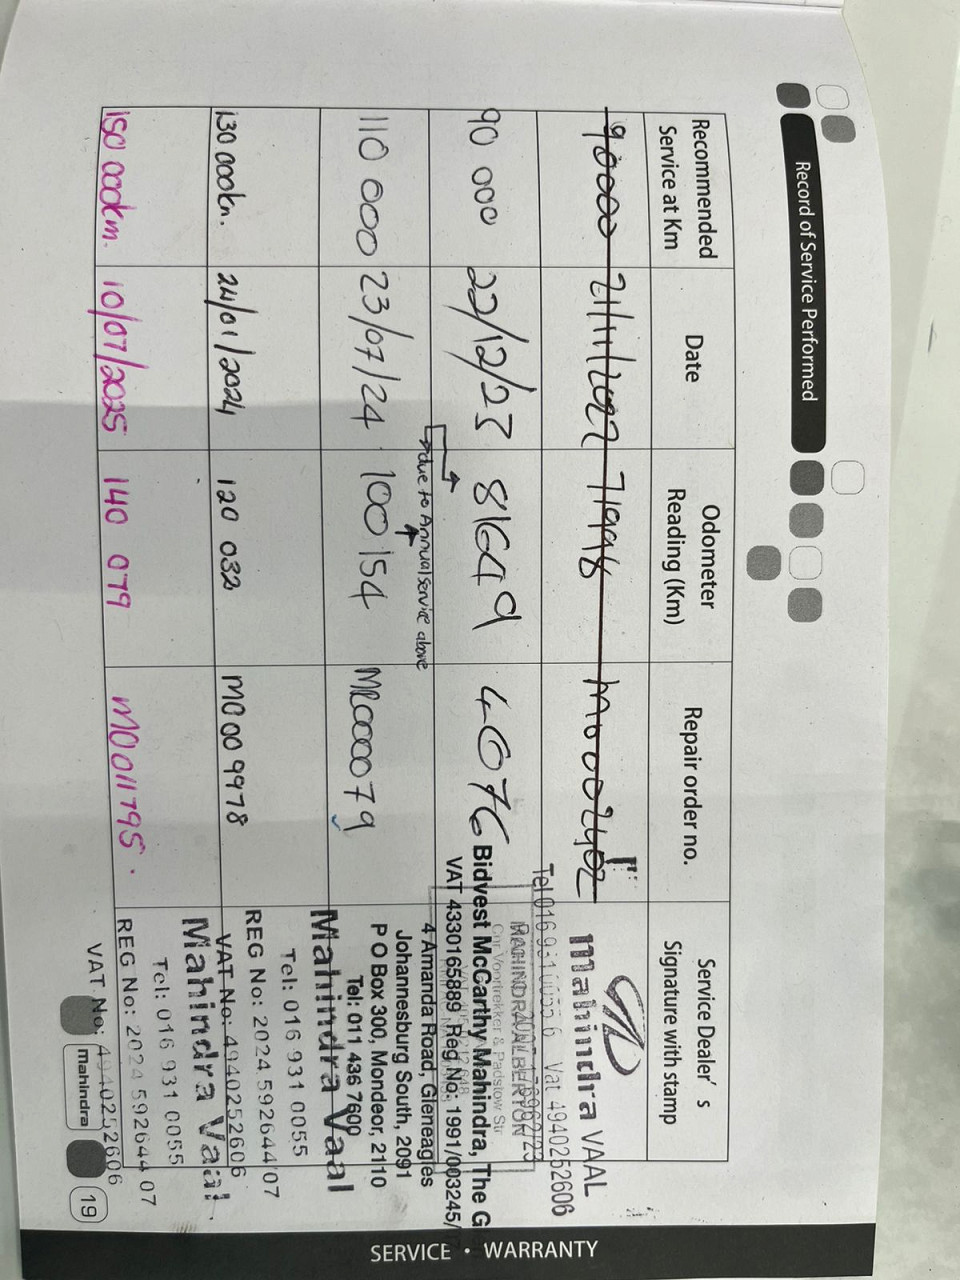 Record of Service Performed
Recommended Service at Km
Date
Odometer Reading (Km)
Repair order no.
Service Dealer's Signature with stamp
90000 21/11/2022 71998 M0002402
mahindra VAAL
Tel 016 931 0055 Vat 4940252606
MAHINDRA ALBERTON
Cnr Voortrekker & Padstow Str
90 000 22/12/23 81649 4676
Bidvest McCarthy Mahindra, The G
VAT 4330165889 Reg No: 1991/003245/
4 Amanda Road, Gleneagles
Johannesburg South, 2091
P O Box 300, Mondeor, 2110
Tel: 011 436 7600
due to Annual service above
110 000 23/07/24 100 154 MR000079
Mahindra Vaal
Tel: 016 931 0055
REG No: 2024 592644 07
VAT No: 4940252606
130 000km. 24/01/2024 120 032 M0009978
Mahindra Vaal
Tel: 016 931 0055
REG No: 2024 592644 07
VAT No: 4940252606
150 000km. 10/07/2025 140 079 M0011795.
mahindra
19
SERVICE • WARRANTY